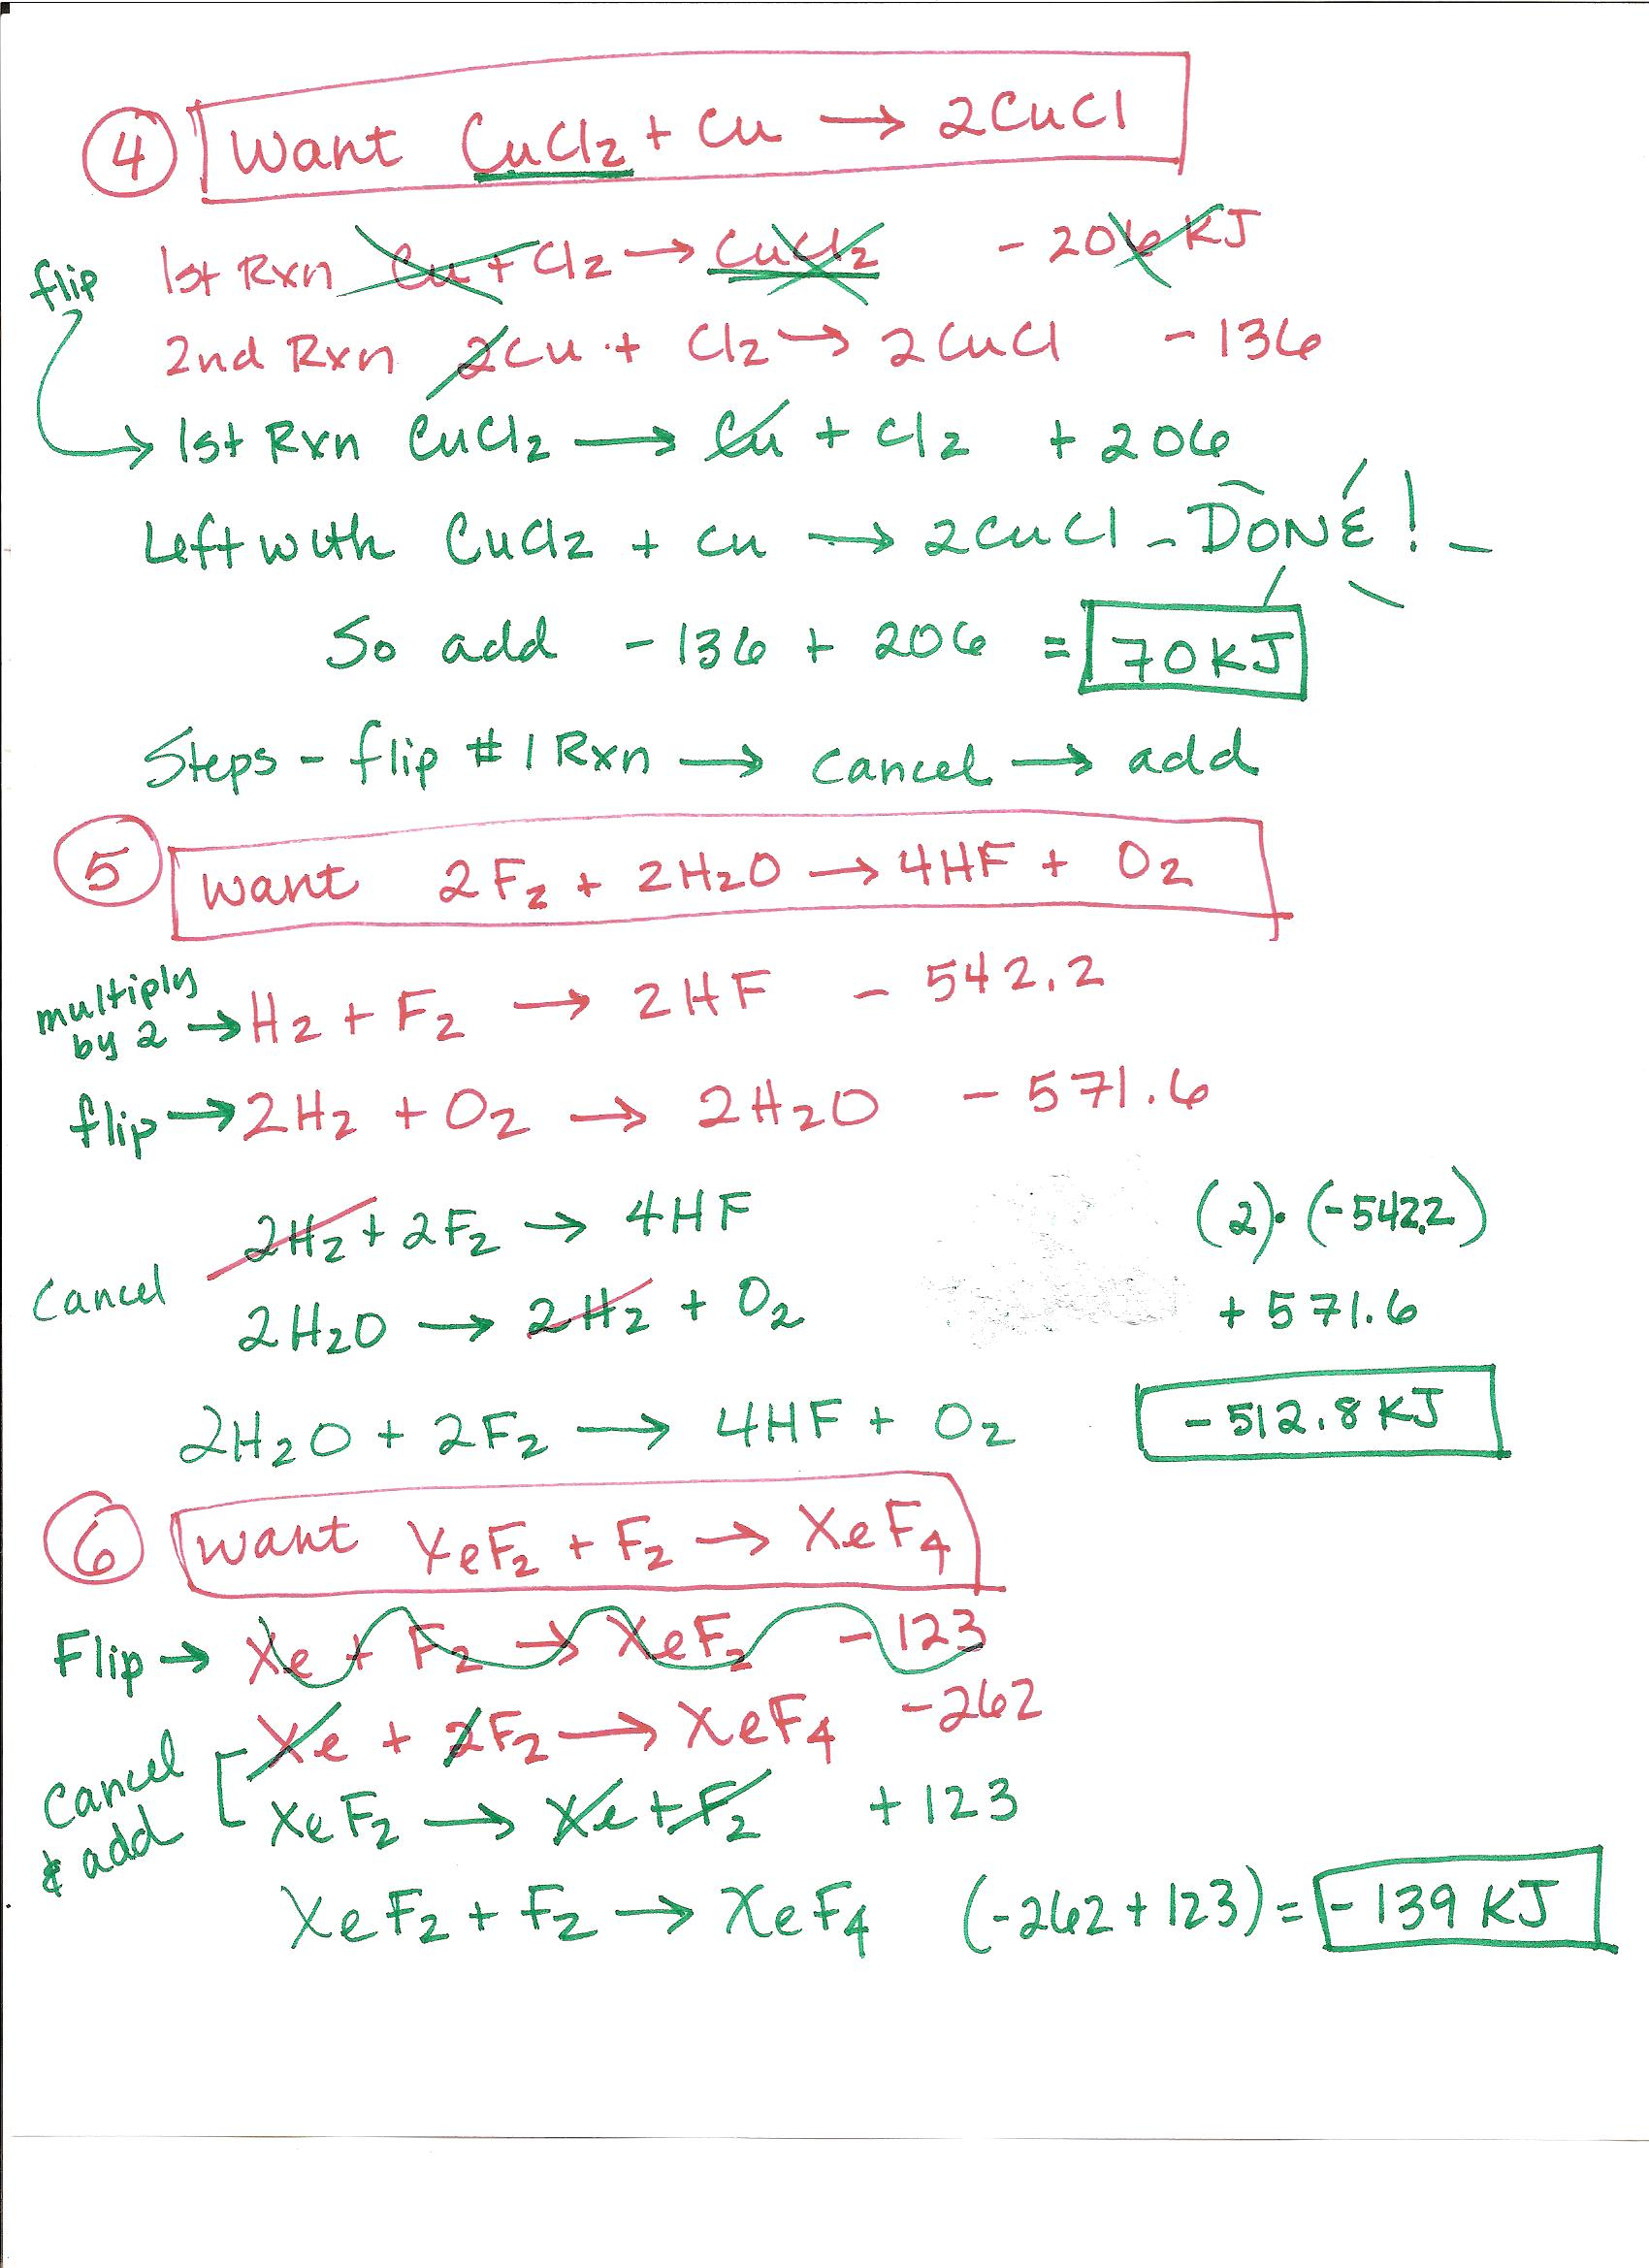 4 Want CuCl2 + Cu → 2CuCl
flip 1st Rxn Cu + Cl2 → CuCl2 - 206 KJ
2nd Rxn 2Cu + Cl2 → 2CuCl - 136
→ 1st Rxn CuCl2 → Cu + Cl2 + 206
Left with CuCl2 + Cu → 2CuCl - DONE! -
So add - 136 + 206 = 70 KJ
Steps - flip # 1 Rxn → Cancel → add
5 Want 2F2 + 2H2O → 4HF + O2
multiply by 2 → H2 + F2 → 2HF - 542.2
flip → 2H2 + O2 → 2H2O - 571.6
2H2 + 2F2 → 4HF (2)·(-542.2)
Cancel
2H2O → 2H2 + O2 + 571.6
2H2O + 2F2 → 4HF + O2 - 512.8 KJ
6 Want XeF2 + F2 → XeF4
Flip → Xe + F2 → XeF2 - 123
Xe + 2F2 → XeF4 - 262
Cancel & add
XeF2 → Xe + F2 + 123
XeF2 + F2 → XeF4 (-262 + 123) = - 139 KJ